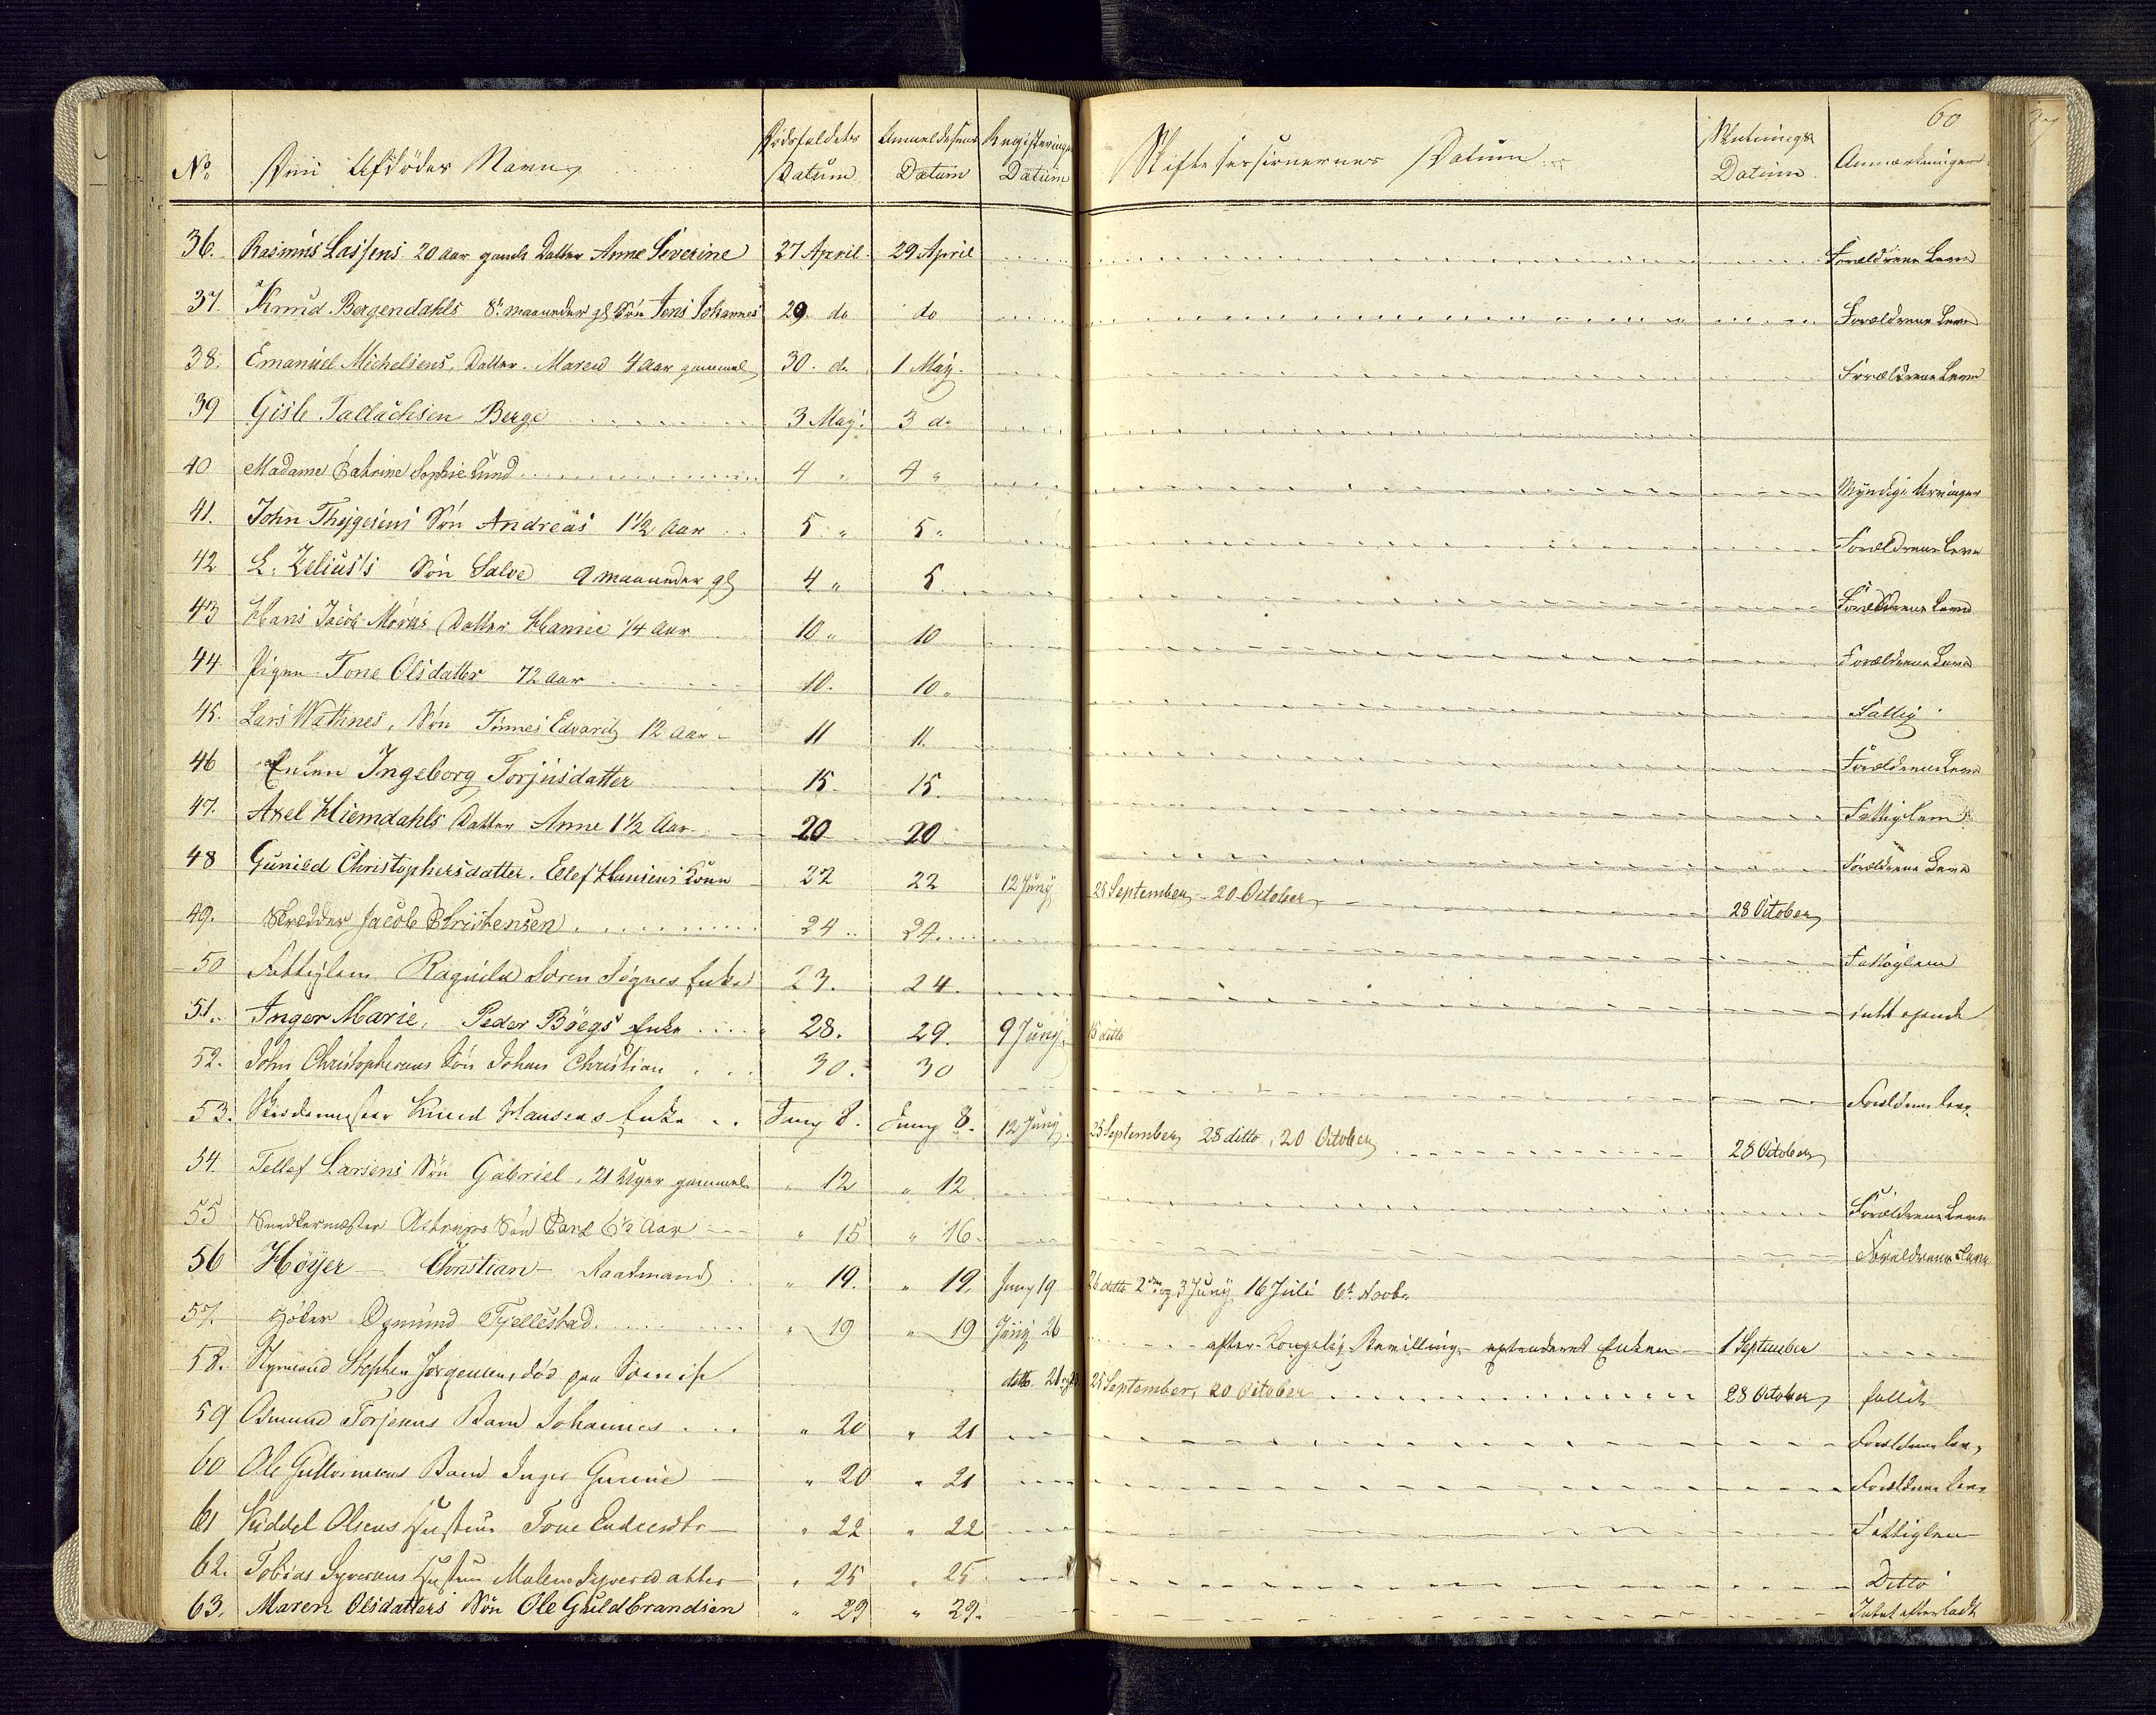 60
No. Den Afdødes Navn Dødsfaldets Datum Anmeldelsens Datum Registerings Datum Skiftesessionernes Datum Slutnings Datum Anmærkninger
36. Rasmus Lassens 20 Aar gamle Datter Anne Severine 27 April 29 April Forældrene Leve
37. Knud Bergendahls 8 maaneder gl Søn Jens Johannes 29 do do Forældrene Leve
38. Emanuel Michelsens, Datter Maren 4 Aar gammel 30. do 1 May. Forældrene Leve
39 Gisle Tallachsen Berge 3 May. 3 do
40 Madame Catrine Sophie Lund 4 " 4 " Myndige Arvinger
41. John Thygesens Søn Andreas 1 1/2 Aar 5 " 5 " Forældrene Leve
42 L. Zelius's Søn Salve 9 maaneder gl 4 " 5 Forældrene Leve
43 Hans Jacob Mørks Datter Hanne 1/4 Aar 10 " 10 Forældrene Leve
44 Pigen Tone Olsdatter 72 Aar 10. 10 " Fattig
45. Lars Wathnes, Søn Tønnes Edvard 12 Aar 11 11. Forældrene Leve
46 Enken Ingeborg Torjusdatter 15. 15. Fattiglem
47. Axel Hiemdahls Datter Anne 1 1/2 Aar 20 20 Forældrene Leve
48 Gunild Christophersdatter. Ellef Hansens Kone 22 22 12 Juny 25 September, 20 October 28 October
49. Skrædder Jacob Christensen 24 24 Fattiglem
50 Fattiglem Ragnild Søren Søgnes Enke 23. 24. intet ejende
51. Inger Marie, Peder Bøegs Enke 28. 29. 9 Juny. 15 ditto
52. John Christophersens Søn Johan Christian 30. 30 Forældrene leve
53. Knud Hansens Enke Juny 8. Juny 8. 12 Juny. 25 September, 28 ditto, 20 October 28 October
54. Tellef Larsens Søn Gabriel, 21 Uger gammel " 12 " 12 Forældrene Leve
55 Snedkermester Astrups Søn Carl 6 1/2 Aar " 15 " 16 Forældrene Leve
56 Høyer Christian Raadmand " 19. " 19. Juny 19 26 ditto 2den og 3 Juny 16 Juli 6t Novbr
57. Høker Ogmund Fjellestad " 19 " 19 Juny 26 efter Kongelig Bevilling Enken 1 September
58. Styrmand Stephen Jørgensen, død paa ditto 21 25 September, 20 October 28 October fallit
59 Osmund Torjesens Barn Johannes " 20 " 21 Forældrene leve
60 Ole Guttormsens Barn Inger Gurine " 20 " 21 Forældrene leve
61 Kiddel Olsens Hustru Tone " 22 " 22 Fattiglem
62. Tobias Syversens Hustru Malene Syversdatter " 25 " 25 Ditto
63. Maren Olsdatters Søn Ole Guldbrandsen " 29 " 29. Intet efterladt